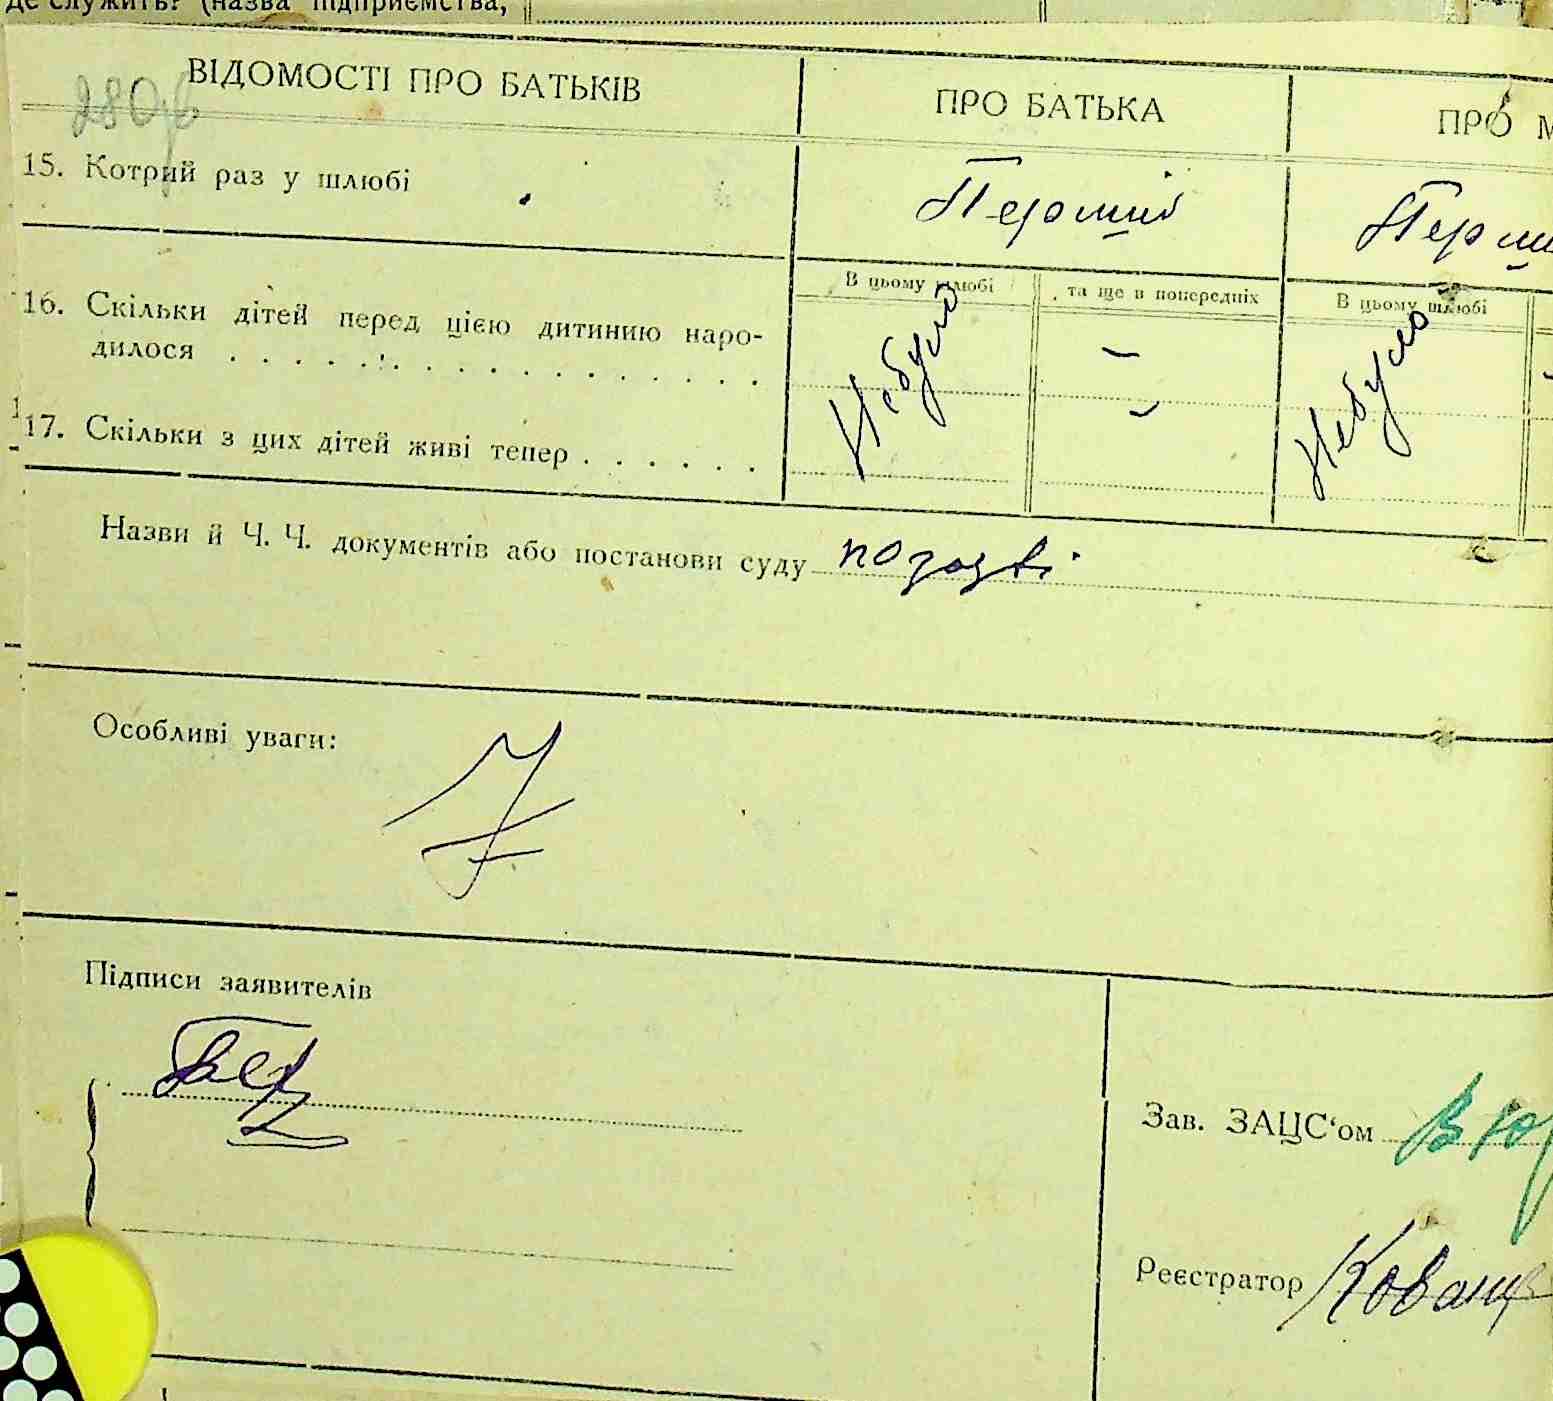 де служить? (назва підприємства,
280
ВІДОМОСТІ ПРО БАТЬКІВ
ПРО БАТЬКА
ПРО М
15. Котрий раз у шлюбі
Перший
Перши
В цьому шлюбі
та ще в попередніх
В цьому шлюбі
16. Скільки дітей перед цією дитиною наро-
дилося
Небуло
Небуло
17. Скільки з цих дітей живі тепер
Назви й Ч. Ч. документів або постанови суду
Особливі уваги:
Підписи заявителів
Зав. ЗАЦС‘ом
Реєстратор